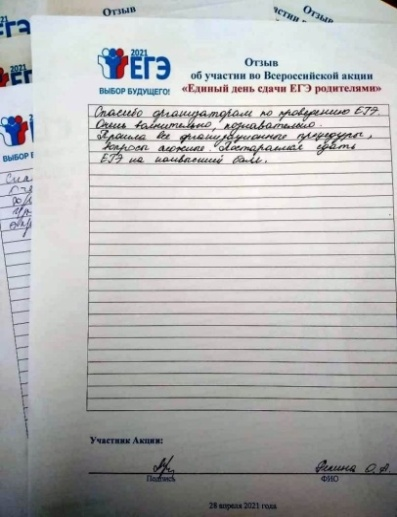 Отзыв
Отзыв
2021
ЕГЭ
ВЫБОР БУДУЩЕГО!
Отзыв
об участии во Всероссийской акции
«Единый день сдачи ЕГЭ родителями»
Спасибо организаторам по проведению ЕГЭ.
Очень волнительно, познавательно.
Прошла все организационные процедуры,
Постаралась сдать
ЕГЭ на наивысший балл.
ВЫБОР Б
Участник Акции:
Подпись
О. А.
ФИО
28 апреля 2021 года